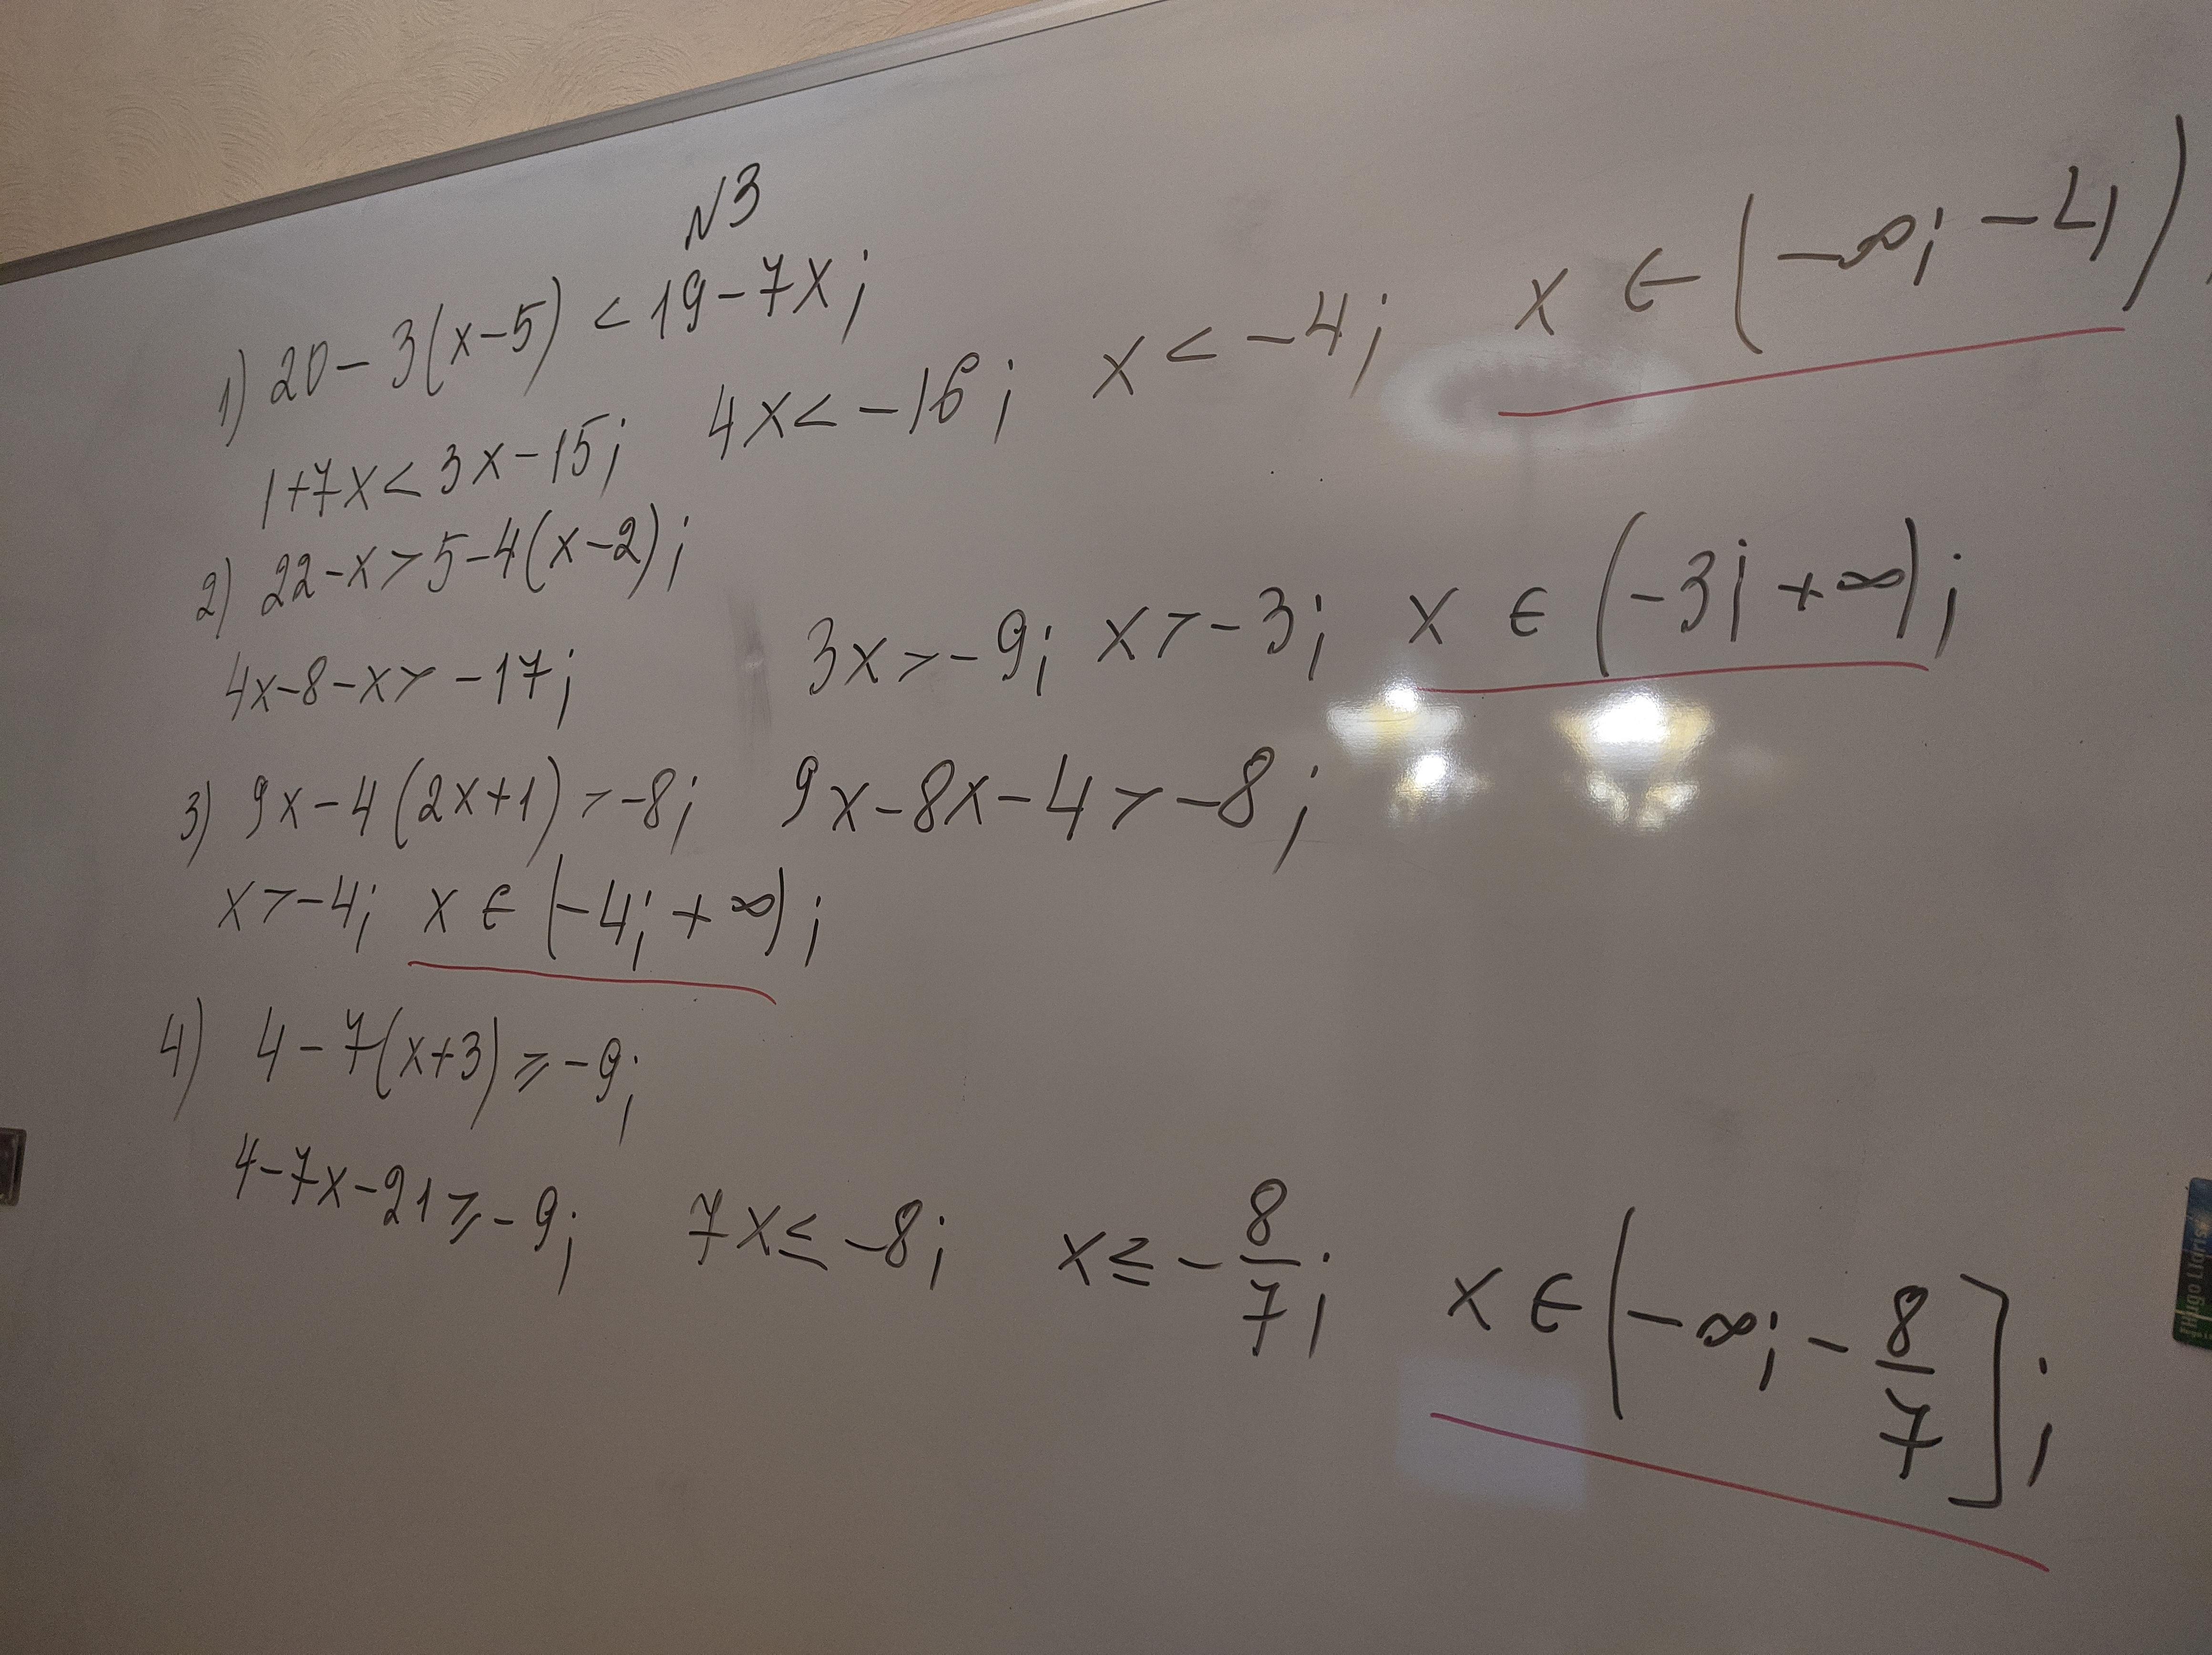 N3
1) 20-3(x-5) < 19-7x;
1+7x < 3x-15; 4x < -16; x < -4; x ∈ (-∞; -4)
2) 22-x > 5-4(x-2);
4x-8-x > -17; 3x > -9; x > -3; x ∈ (-3; +∞);
3) 9x-4(2x+1) > -8; 9x-8x-4 > -8;
x > -4; x ∈ (-4; +∞);
4) 4-7(x+3) ≥ -9;
4-7x-21 ≥ -9; 7x ≤ -8; x ≤ -8/7; x ∈ (-∞; -8/7];